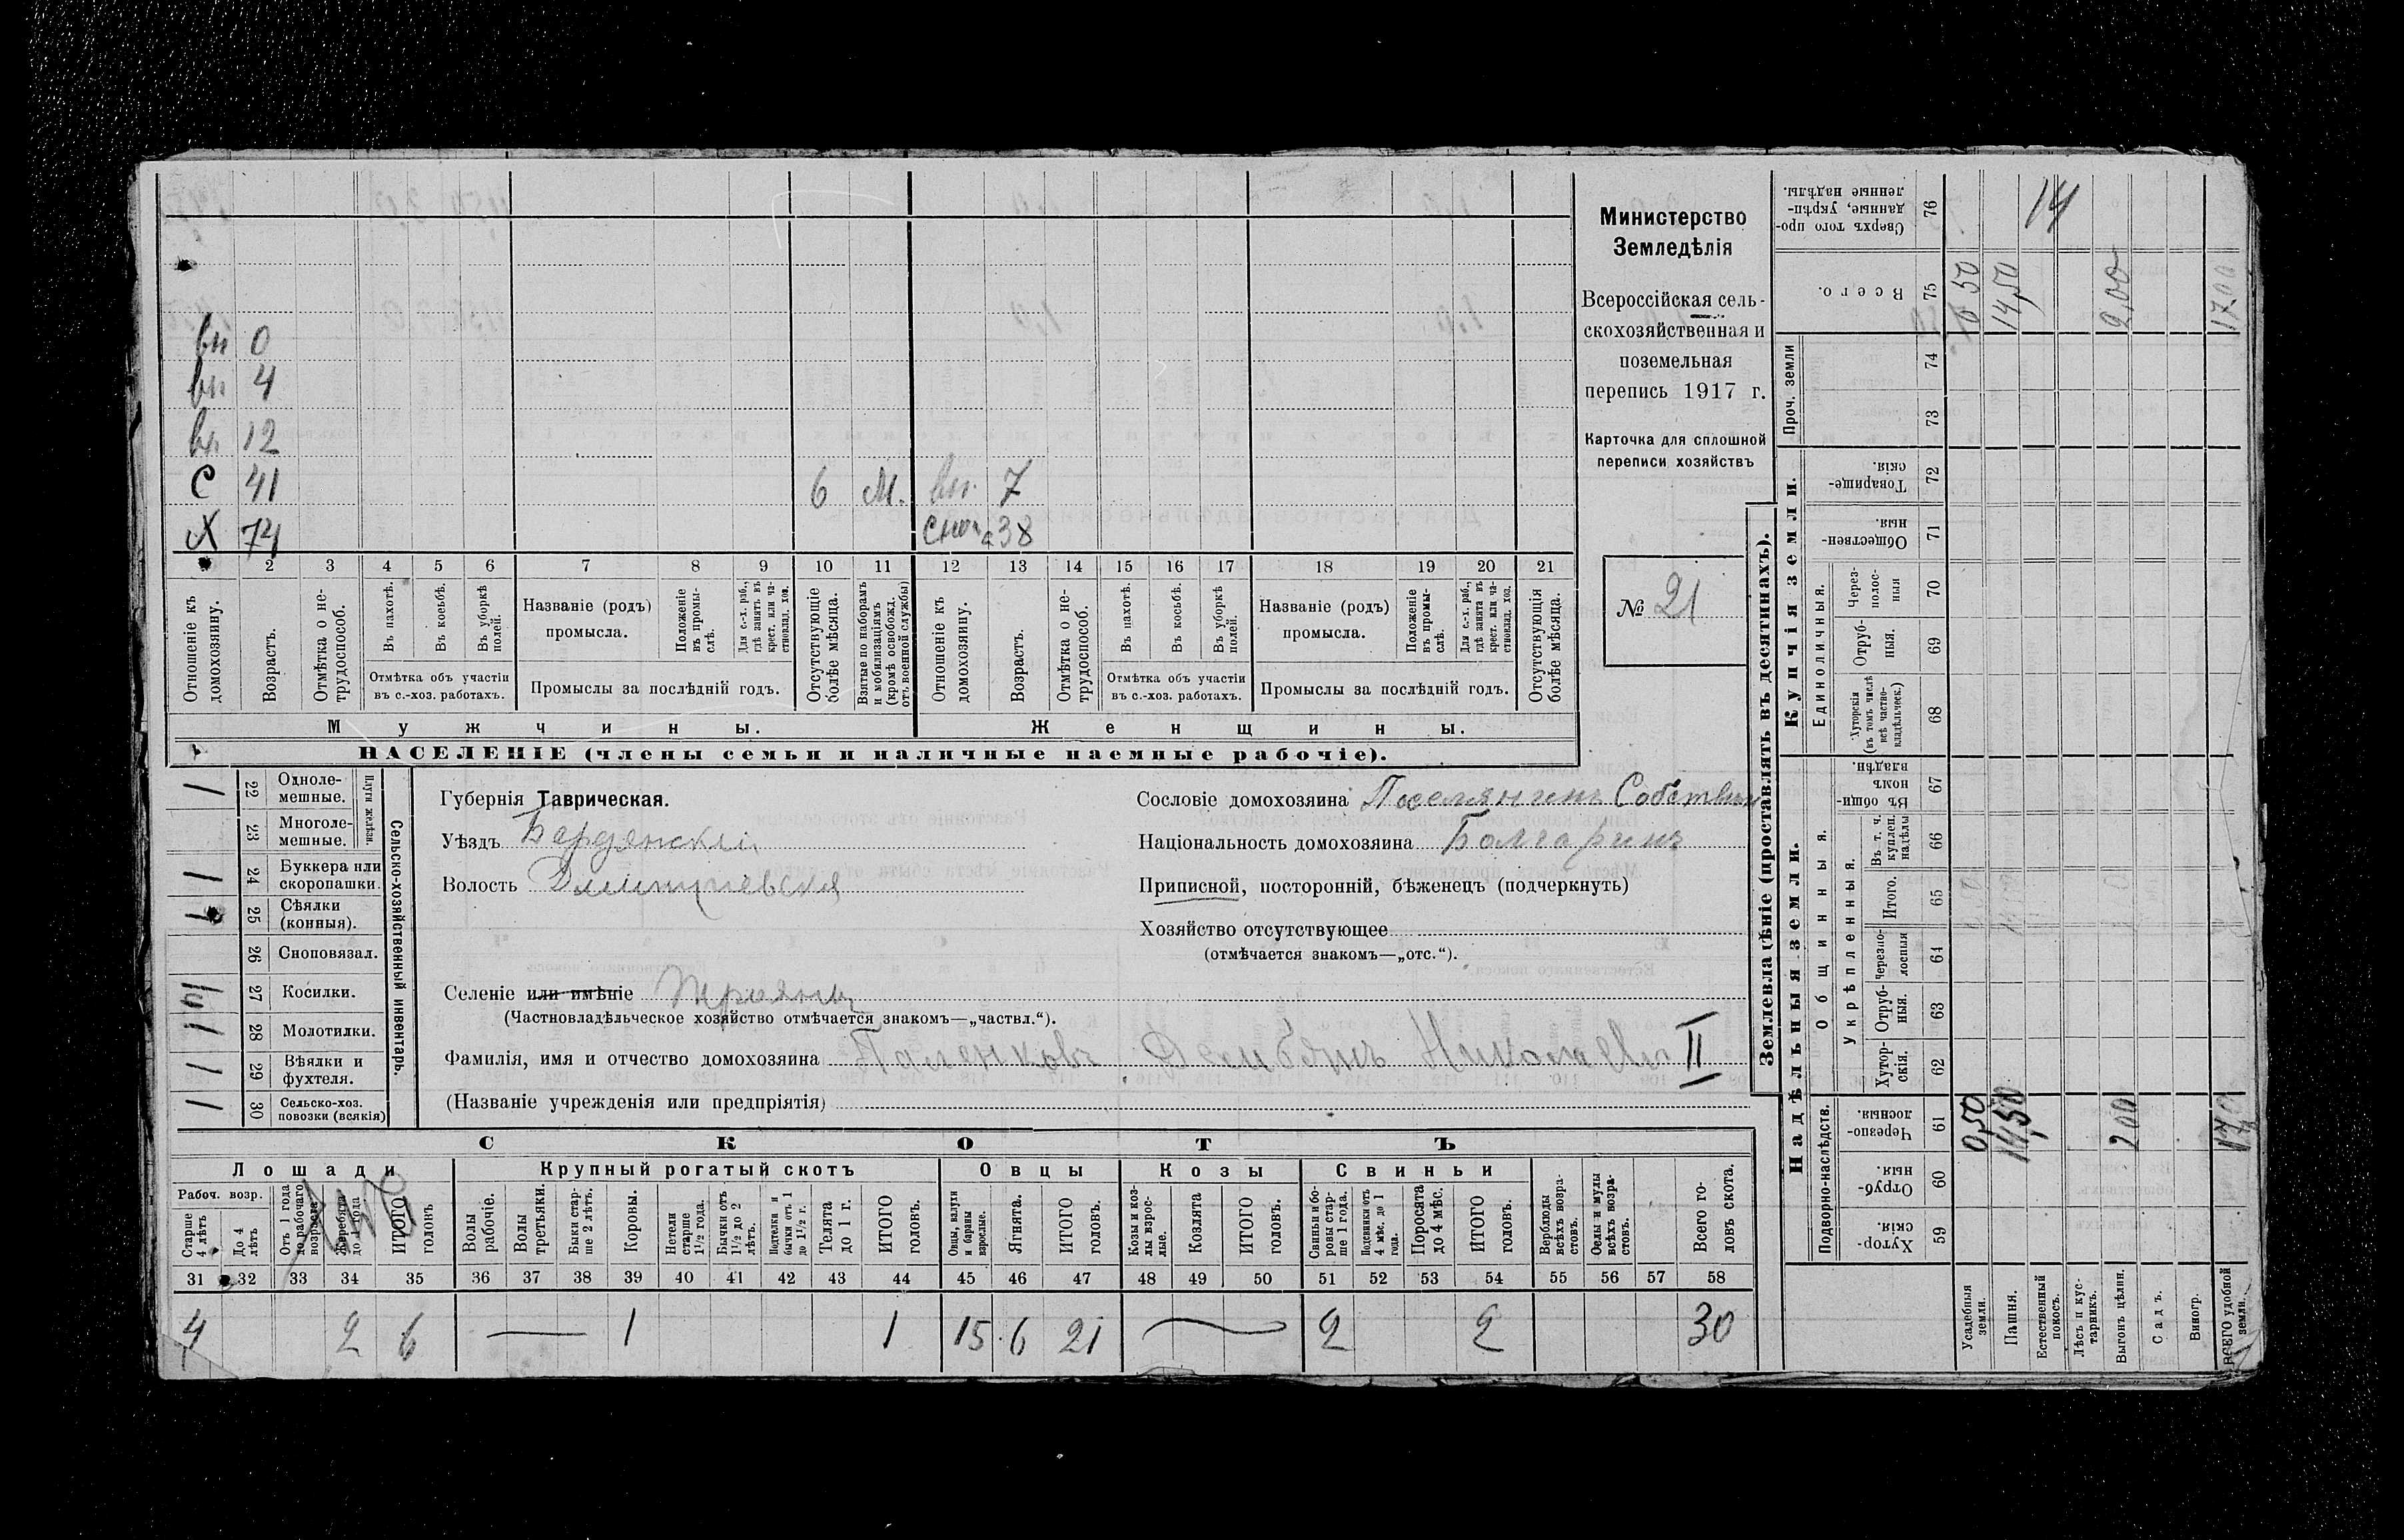 Министерство
Земледѣлія
Всероссійская сель-
скохозяйственная и
поземельная
перепись 1917 г.
Карточка для сплошной
переписи хозяйствъ
№ 21
вн 0
вн 4
вн 12
С 41 6 М. вн. 7
Х 74 сноха 38
1 2 3 4 5 6 7 8 9 10 11 12 13 14 15 16 17 18 19 20 21
Отношеніе къ домохозяину.
Возрастъ.
Отмѣтка о не-трудоспособ.
Въ пахотѣ.
Въ косьбѣ.
Въ уборкѣ полей.
Отмѣтка объ участіи
въ с.-хоз. работахъ.
Названіе (родъ)
промысла.
Положеніе въ промы-слѣ.
Для с.-х. раб., гдѣ занятъ въ крест. или ча-стновлад. хоз.
Промыслы за послѣдній годъ.
Отсутствующіе болѣе мѣсяца.
Взятые по наборамъ и мобилизаціямъ (кромѣ освобожд. отъ военной службы)
Отношеніе къ домохозяину.
Возрастъ.
Отмѣтка о не-трудоспособ.
Въ пахотѣ.
Въ косьбѣ.
Въ уборкѣ полей.
Отмѣтка объ участіи
въ с.-хоз. работахъ.
Названіе (родъ)
промысла.
Положеніе въ промы-слѣ.
Для с.-х. раб., гдѣ занята въ крест. или ча-стновлад. хоз.
Промыслы за послѣдній годъ.
Отсутствующія болѣе мѣсяца.
Мужчины. Женщины.
НАСЕЛЕНІЕ (члены семьи и наличные наемные рабочіе).
Сельско-хозяйственный инвентарь.
Плуги желѣзн.
1 22 Одноле-мешные.
23 Многоле-мешные.
1 24 Буккера или скоропашки.
1 25 Сѣялки (конныя).
26 Сноповязал.
27 Косилки.
1 28 Молотилки.
1 29 Вѣялки и фухтеля.
1 30 Сельско-хоз. повозки (всякія)
Губернія Таврическая.
Уѣздъ Бердянскій
Волость
Селеніе или имѣніе
(Частновладѣльческое хозяйство отмѣчается знакомъ—„частвл.“).
Фамилія, имя и отчество домохозяина II
(Названіе учрежденія или предпріятія)
Сословіе домохозяина Поселянинъ Собственн
Національность домохозяина Болгаринъ
Приписной, посторонній, бѣженецъ (подчеркнуть)
Хозяйство отсутствующее
(отмѣчается знакомъ—„отс.“).
СКОТЪ
Лошади Крупный рогатый скотъ Овцы Козы Свиньи
Рабоч. возр.
Старше 4 лѣтъ
До 4 лѣтъ
Отъ 1 года до рабочаго возраста
Жеребята до 1 года
ИТОГО головъ
Волы рабочіе.
Волы третьяки.
Быки стар-ше 2 лѣтъ.
Коровы.
Нетели старше 1½ года.
Бычки отъ 1½ до 2 лѣтъ.
Подтелки и бычки отъ 1 до 1½ г.
Телята до 1 г.
ИТОГО головъ.
Овцы, валухи и бараны взрослые.
Ягнята.
ИТОГО головъ.
Козы и коз-лы взрос-лые.
Козлята
ИТОГО головъ.
Свиньи и бо-ровы стар-ше 1 года.
Подсвинки отъ 4 мѣс. до 1 года.
Поросята до 4 мѣс.
ИТОГО головъ.
Верблюды всѣхъ возра-стовъ.
Ослы и мулы всѣхъ возра-стовъ.
Всего го-ловъ скота.
31 32 33 34 35 36 37 38 39 40 41 42 43 44 45 46 47 48 49 50 51 52 53 54 55 56 57 58
4 2 6 1 1 15 6 21 2 2 30
Землевладѣніе (проставлять въ десятинахъ).
Надѣльныя земли. Купчія земли. Проч. земли
Подворно-наслѣдств.
Общинныя.
Укрѣпленныя.
Единоличныя.
Хутор-скія. 59
Отруб-ныя. 60
Черезпо-лосныя. 61
Хутор-скія. 62
Отруб-ныя. 63
Черезпо-лосныя 64
Итого. 65
Въ т. ч. куплен. надѣлы 66
Въ общин-номъ владѣн. 67
Хуторскія (въ томъ числѣ всѣ частно-владѣльческ.) 68
Отруб-ныя. 69
Через-полос-ныя 70
Обществен-ныя. 71
Товарище-скія. 72
73
74
Всего. 75
Сверхъ того про-данные, укрѣп-ленные надѣлы. 76
Усадебныя земли. 0,50
Пашня. 14,50 14,50
Естественный покосъ. 14
Лѣсъ и кус-тарникъ.
Выгонъ цѣлин. 200 2,00
Садъ.
Виногр.
ВСЕГО удобной земли. 17,00